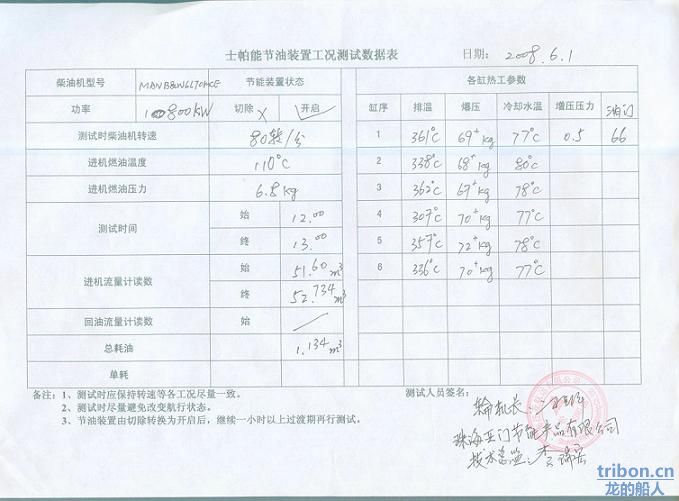 士帕能节油装置工况测试数据表 日期: 2008.6.1
柴油机型号 MANB&W6L70MCE 节能装置状态 各缸热工参数
功率 10800kW 切除 × 开启 ✓ 缸序 排温 爆压 冷却水温 增压压力 油门
测试时柴油机转速 80转/分 1 361℃ 69⁺kg 77℃ 0.5 66
进机燃油温度 110℃ 2 338℃ 68⁺kg 80℃
进机燃油压力 6.8kg 3 362℃ 67⁺kg 78℃
测试时间 始 12.00 4 307℃ 70⁺kg 77℃
终 13.00 5 357℃ 72⁺kg 78℃
进机流量计读数 始 51.60m³ 6 336℃ 70⁺kg 77℃
终 52.734m³
回油流量计读数 始 /
总耗油 1.134m³
单耗
备注: 1、测试时应保持转速等各工况尽量一致。 测试人员签名:
2、测试时尽量避免改变航行状态。 轮机长:
3、节油装置由切除转换为开启后，继续一小时以上过渡期再行测试。
珠海 门节能产品有限公司
技术总监: 李
tribon.cn
龙的船人